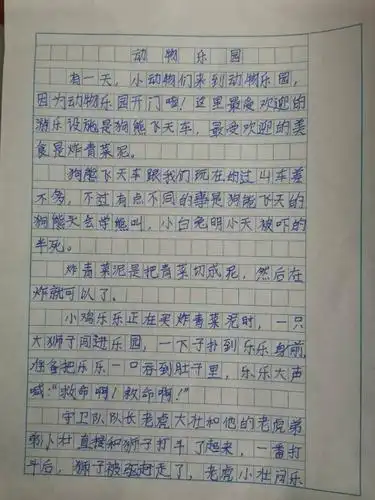 动物乐园
有一天，小动物们来到动物乐园，
因为动物乐园开门啦！这里最受欢迎的
游乐设施是狗熊飞天车，最受欢迎的美
食是炸青菜泥。
狗熊飞天车跟我们玩在的过山车差
不多，不过有点不同的事是狗熊飞天的
狗熊头会学熊叫，小白兔明小天被吓的
半死。
炸青菜泥是把青菜切成泥，然后在
炸就可以了。
小鸡乐乐正在买炸青菜泥时，一只
大狮子闯进乐园，一下子扑到乐乐身前，
准备把乐乐一口吞到肚子里，乐乐大声
喊："救命啊！救命啊！"
守卫队队长老虎大壮和他的老虎弟
弟小壮直接和狮子打斗了起来，一番打
斗后，狮子被驱赶走了，老虎小壮问乐